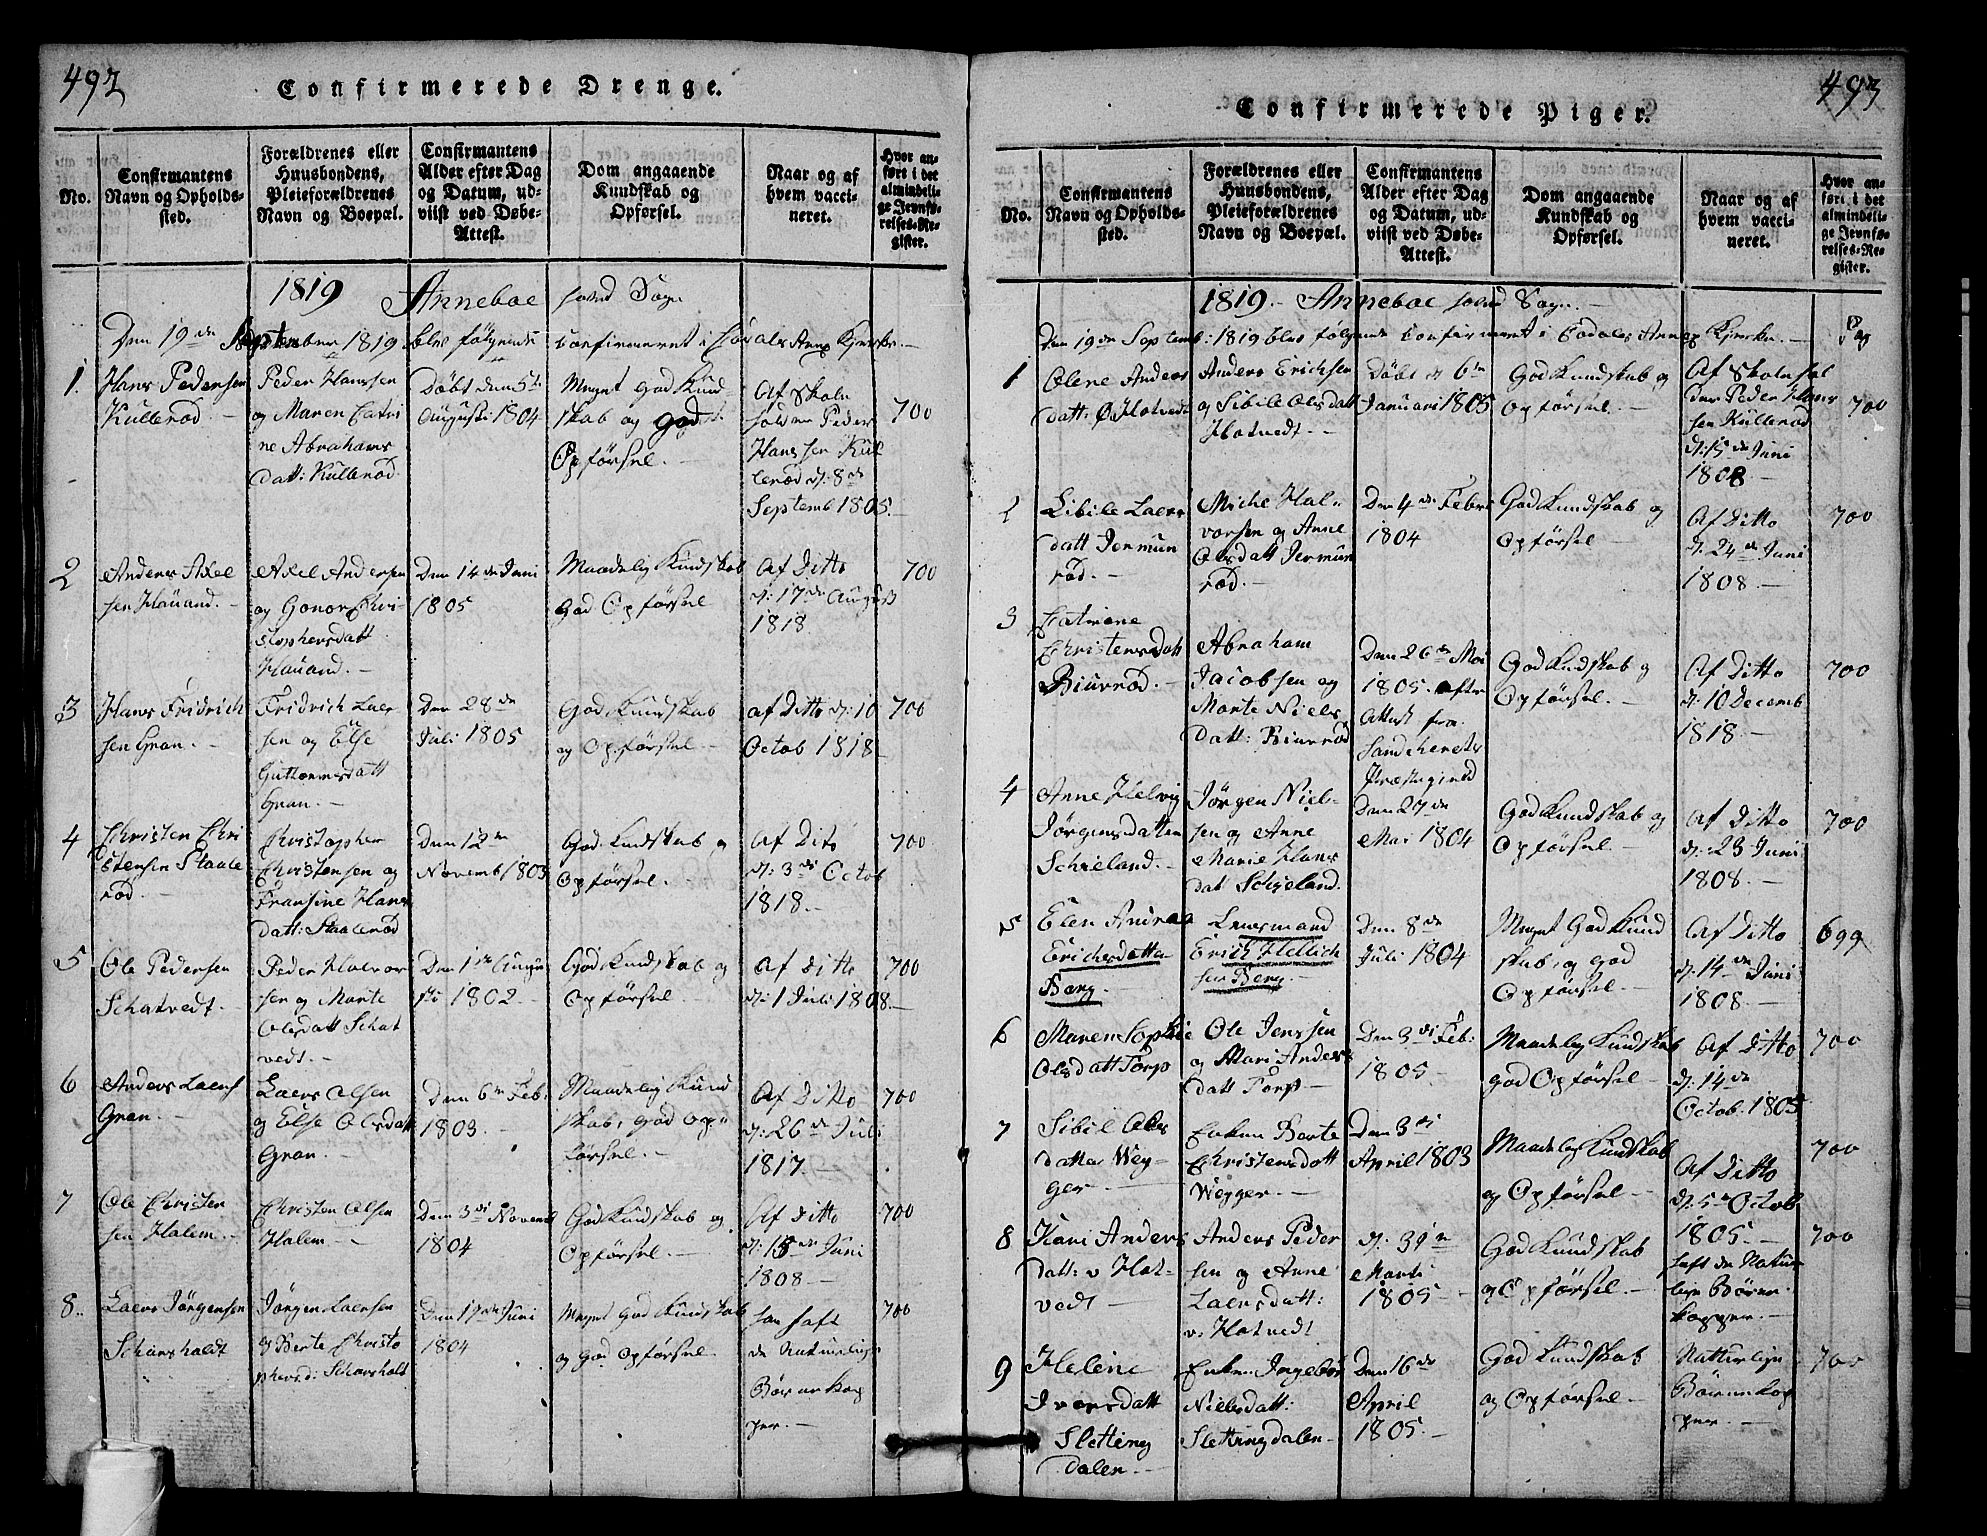 492
Confirmerede Drenge.
No.
Confirmantens Navn og Opholds-sted.
Forældrenes eller Huusbondens, Pleieforældrenes Navn og Boepæl.
Confirmantens Alder efter Dag og Datum, ud-viist ved Døbe-Attest.
Dom angaaende Kundskab og Opførsel.
Naar og af hvem vacci-neret.
Hvor an-ført i det almindeli-ge Jevnfø-relses-Re-gister.
1819 Anneboe Sogn
Den 19de September 1819 blev følgende confirmeret i Annex Kierke.
1.
Hans Pedersen
Kullerød.
Peder Hanssen
og Maren Catri
ne Abrahams
datt: Kullerød
Døbt den 5te
Augusti 1804
Meget God Kund
skab og god
Opførsel.
Af Skole
holder Peder
Hanssen Kul
lerød d: 8de
Septemb 1805.
700
2
Anders Axel
sen Hauand.
Axel Andersen
og Gonor Chri
stophersdatt
Hauand.
Den 14de Juni
1805
Maadelig Kundskab
God Opførsel
Af Ditto
d: 17de August
1818
700
3
Hans Fridrich
sen Gran.
Fridrich Laer
sen og Else
Guttormsdatt
Gran.
Den 28de
Juli 1805
God Kundskab
og Opførsel.
af Ditto d: 10
Octob 1818
700
4
Christen Chri
stensen Staale
rød.
Christopher
Christensen og
Fransine Hans
datt: Staalerød
Den 12te
Novemb 1803
God Kundskab og
Opførsel.
Af Dito
d: 3de Octob
1818.
700
5
Ole Pedersen
Schatvedt.
Peder Halvor
sen og Marte
Olsdatt Schat
vedt.
Den 1ste Augu
sti 1802.
God Kundskab og
Opførsel.
Af Ditto
d: 1 Juli 1808.
700
6
Anders Laers
Gran.
Laers Olsen
og Else Olsdatt
Gran.
Den 6te Feb.
1803.
Maadelig Kund
skab, god Op
førsel.
Af Ditto
d: 26de Juli
1817.
700
7
Ole Christen
sen Halem.
Christen Olsen
Halem
Den 3di Novemb
1804
God Kundskab og
Opførsel.
Af Ditto
d: 15de Juni
1808
700
8.
Laers Jørgensen
Schavhaldt
Jørgen Laersen
og Berte Christo
phersd: Schavhaldt
Den 17de Juni
1804
Meget God Kundskab
og God Opførsel.
han haft
de Naturlige
Børne Kop
per.
700
493
Confirmerede Piger.
No.
Confirmantens Navn og Opholds-sted.
Forældrenes eller Huusbondens, Pleieforældrenes Navn og Boepæl.
Confirmantens Alder efter Dag og Datum, ud-viist ved Døbe-Attest.
Dom angaaende Kundskab og Opførsel.
Naar og af hvem vacci-neret.
Hvor an-ført i det almindeli-ge Jevnfø-relses-Re-gister.
1819. Anneboe Sogn.
Den 19de Septemb: 1819 blev følgende confirmeret i Annex Kierke.
Pag
1
Olene Anders
datt: Hotvedt
Anders Erichsen
og Sibile Olsdatt
Hotvedt.
Døbt d 6te
Januari 1805
God Kundskab og
Opførsel.
Af Skolehol
der Peder Hans
sen Kullerød
d: 15de Juni
1808
700
2
Sibile Laers
datt Jermun
rød.
Miche Hal
vorsen og Anne
Olsdatt Jermun
rød.
Den 4de Febr
1804
God Kundskab og
Opførsel
Af Ditto
d: 24de Juni
1808.
700
3
Catrine
Christensdatt
Biurrød.
Abraham
Jacobsen og
Marte Niels
datt: Biurrød
Den 26de Mai
1805. efter
Attest fra
Sandeherets
Præstegield
God Kundskab og
Opførsel.
Af Ditto
d: 10 Decemb
1818.
700
4
Anne Helvig
Jørgensdatter
Schieland.
Jørgen Niel
sen og Anne
Marie Hans
dat Schieland.
Den 27de
Mai 1804
God Kundskab og
Opførsel.
Af Ditto
d: 23 Juni
1808.
700
5
Elen Andrea
Erichsdatter
Berg.
Lensmand
Erich Hellich
sen Berg.
Den 8de
Juli 1804
Meget God Kund
skab, og god
Opførsel.
Af Ditto
d: 14de Juni
1808.
699
6
Maren Sophie
Olsdatt Torp
Ole Jenssen
og Mari Anders
datt Torp
Den 3di Feb:
1805.
Maadelig Kundskab
god Opførsel
Af Ditto
d: 14de
Octob. 1805
700
7
Sibil Ols
datter Weg
ger
Enken Berte
Christensdatt
Wegger.
Den 3di
April 1803
Maadelig Kundskab
og Opførsel
Af Ditto
d: 5te Octob
1805.
700
8
Kari Anders
datt: v Hot
vedt
Anders Peder
sen og Anne
Laersdatt:
v. Hotvedt
d: 31te
Marti
1805
God Kundskab
og Opførsel.
haft de Natur
lige Børne
kopper.
700
9
Helene
Iversdatt
Sletting
dalen.
Enken Ingebor
Nielsdatt:
Slettingdalen
Den 16de
April
1805.
God Kundskab
og Opførsel.
Naturlige
Børnekop
per.
700